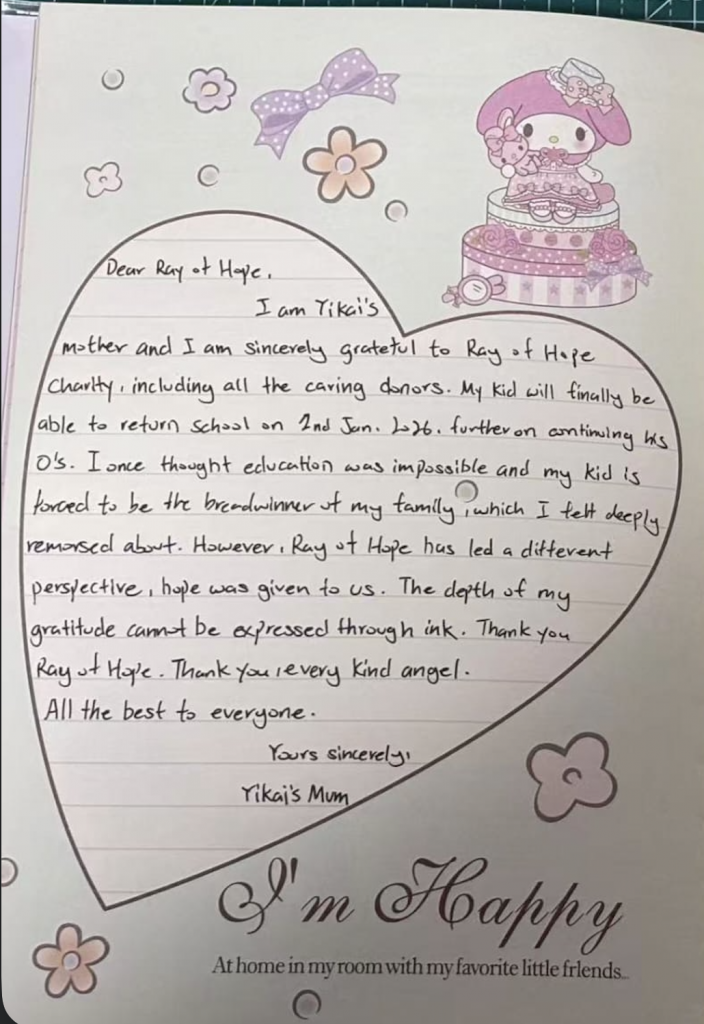 Dear Ray of Hope,
I am Yikai's
mother and I am sincerely grateful to Ray of Hope
Charity, including all the caring donors. My kid will finally be
able to return school on 2nd Jan. 2026. further on continuing his
O's. I once thought education was impossible and my kid is
forced to be the breadwinner of my family, which I felt deeply
remorsed about. However, Ray of Hope has led a different
perspective, hope was given to us. The depth of my
gratitude cannot be expressed through ink. Thank you
Ray of Hope. Thank you, every kind angel.
All the best to everyone.
Yours sincerely,
Yikai's Mum
I'm Happy
At home in my room with my favorite little friends...